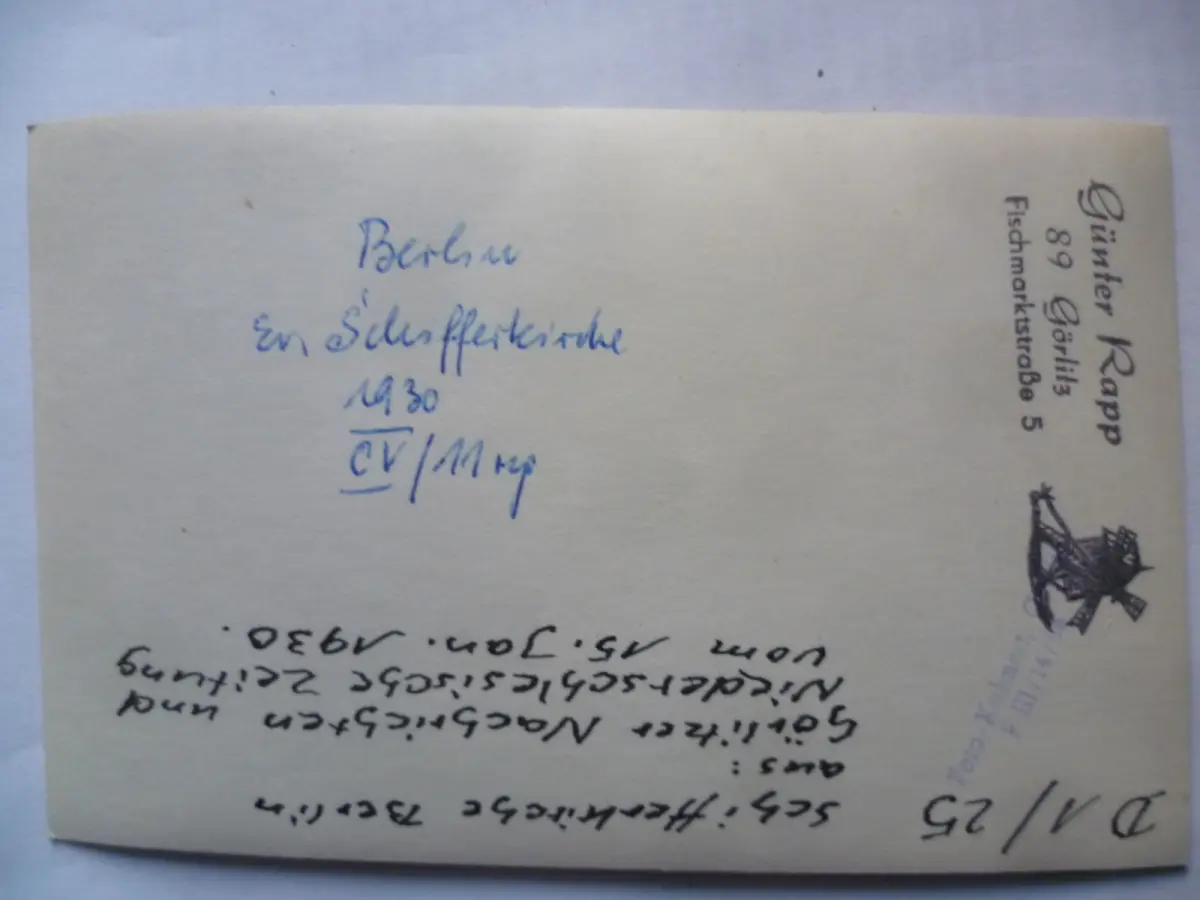 Berlin
Ev. Schifferkirche
1930
CV/11
Günter Rapp
89 Görlitz
Fischmarktstraße 5
D 1/25
Schifferkirche Berlin
aus:
Görlitzer Nachrichten und
Niederschlesische Zeitung
vom 15. Jan. 1930.